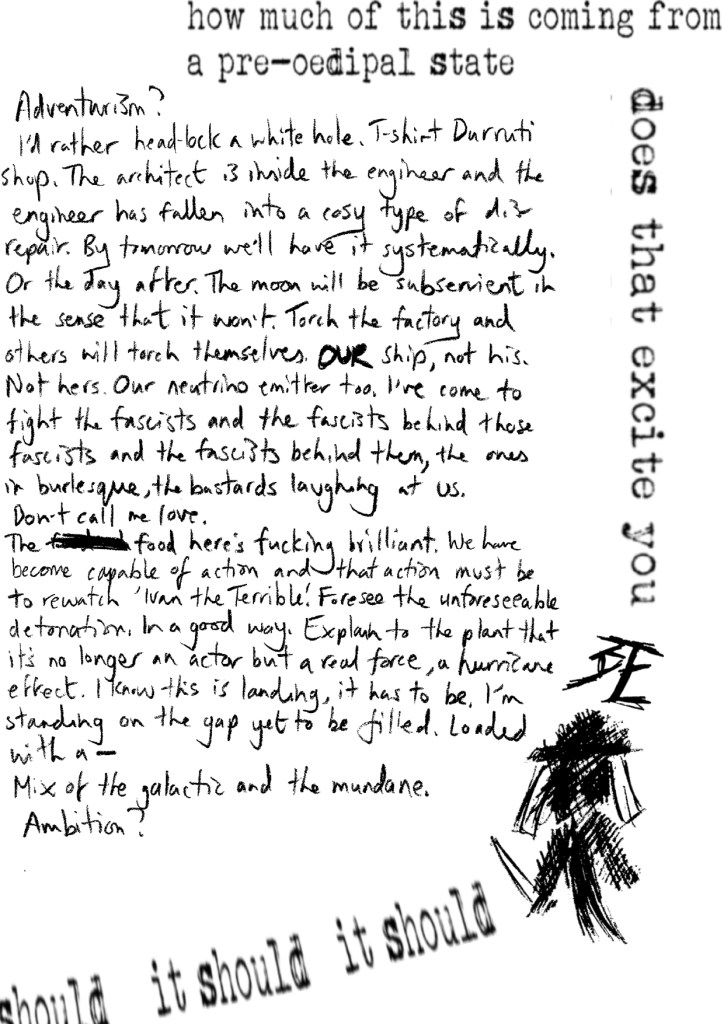 how much of this is coming from
a pre-oedipal state
does that excite you
Adventurism?
I'd rather head-lock a white hole. T-shirt Durruti
shop. The architect is inside the engineer and the
engineer has fallen into a cosy type of dis-
repair. By tomorrow we'll have it systematically.
Or the day after. The moon will be subservient in
the sense that it won't. Torch the factory and
others will torch themselves. OUR ship, not his.
Not hers. Our neutrino emitter too. I've come to
fight the fascists and the fascists behind those
fascists and the fascists behind them, the ones
in burlesque, the bastards laughing at us.
Don't call me love.
The food here's fucking brilliant. We have
become capable of action and that action must be
to rewatch 'Ivan the Terrible'. Foresee the unforeseeable
detonation. In a good way. Explain to the plant that
it's no longer an actor but a real force, a hurricane
effect. I know this is landing, it has to be. I'm
standing on the gap yet to be filled. Loaded
with a —
Mix of the galactic and the mundane.
Ambition?
should it should it should